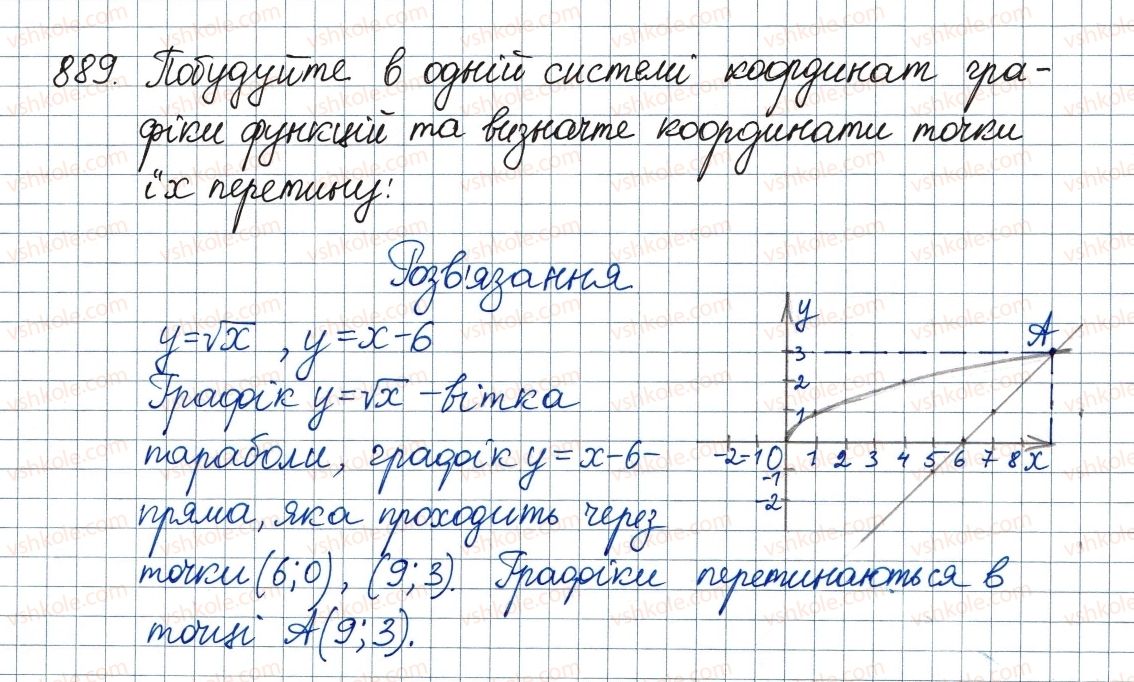 889. Побудуйте в одній системі координат гра-
фіки функцій та визначте координати точки
їх перетину:
Розв'язання
y=√x , y=x-6
Графік y=√x -вітка
параболи, графік y=x-6-
пряма, яка проходить через
точки (6;0), (9;3). Графіки перетинаються в
точці A(9;3).
y
A
3
2
1
-2 -1 0 1 2 3 4 5 6 7 8 x
-1
-2
vshkole.com